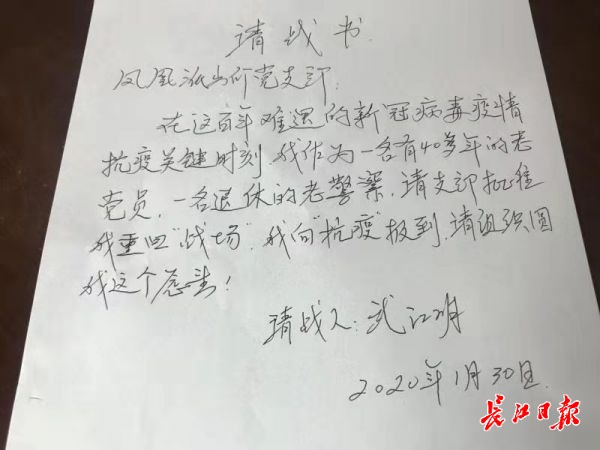 请战书
凤凰派出所党支部:
在这百年难遇的新冠病毒疫情
抗疫关键时刻 我作为一名有40多年的老
党员,一名退休的老警察,请支部批准
我重回"战场",我向"抗疫"报到,请组织圆
我这个愿望!
请战人:武江明
2020年1月30日
长江日报